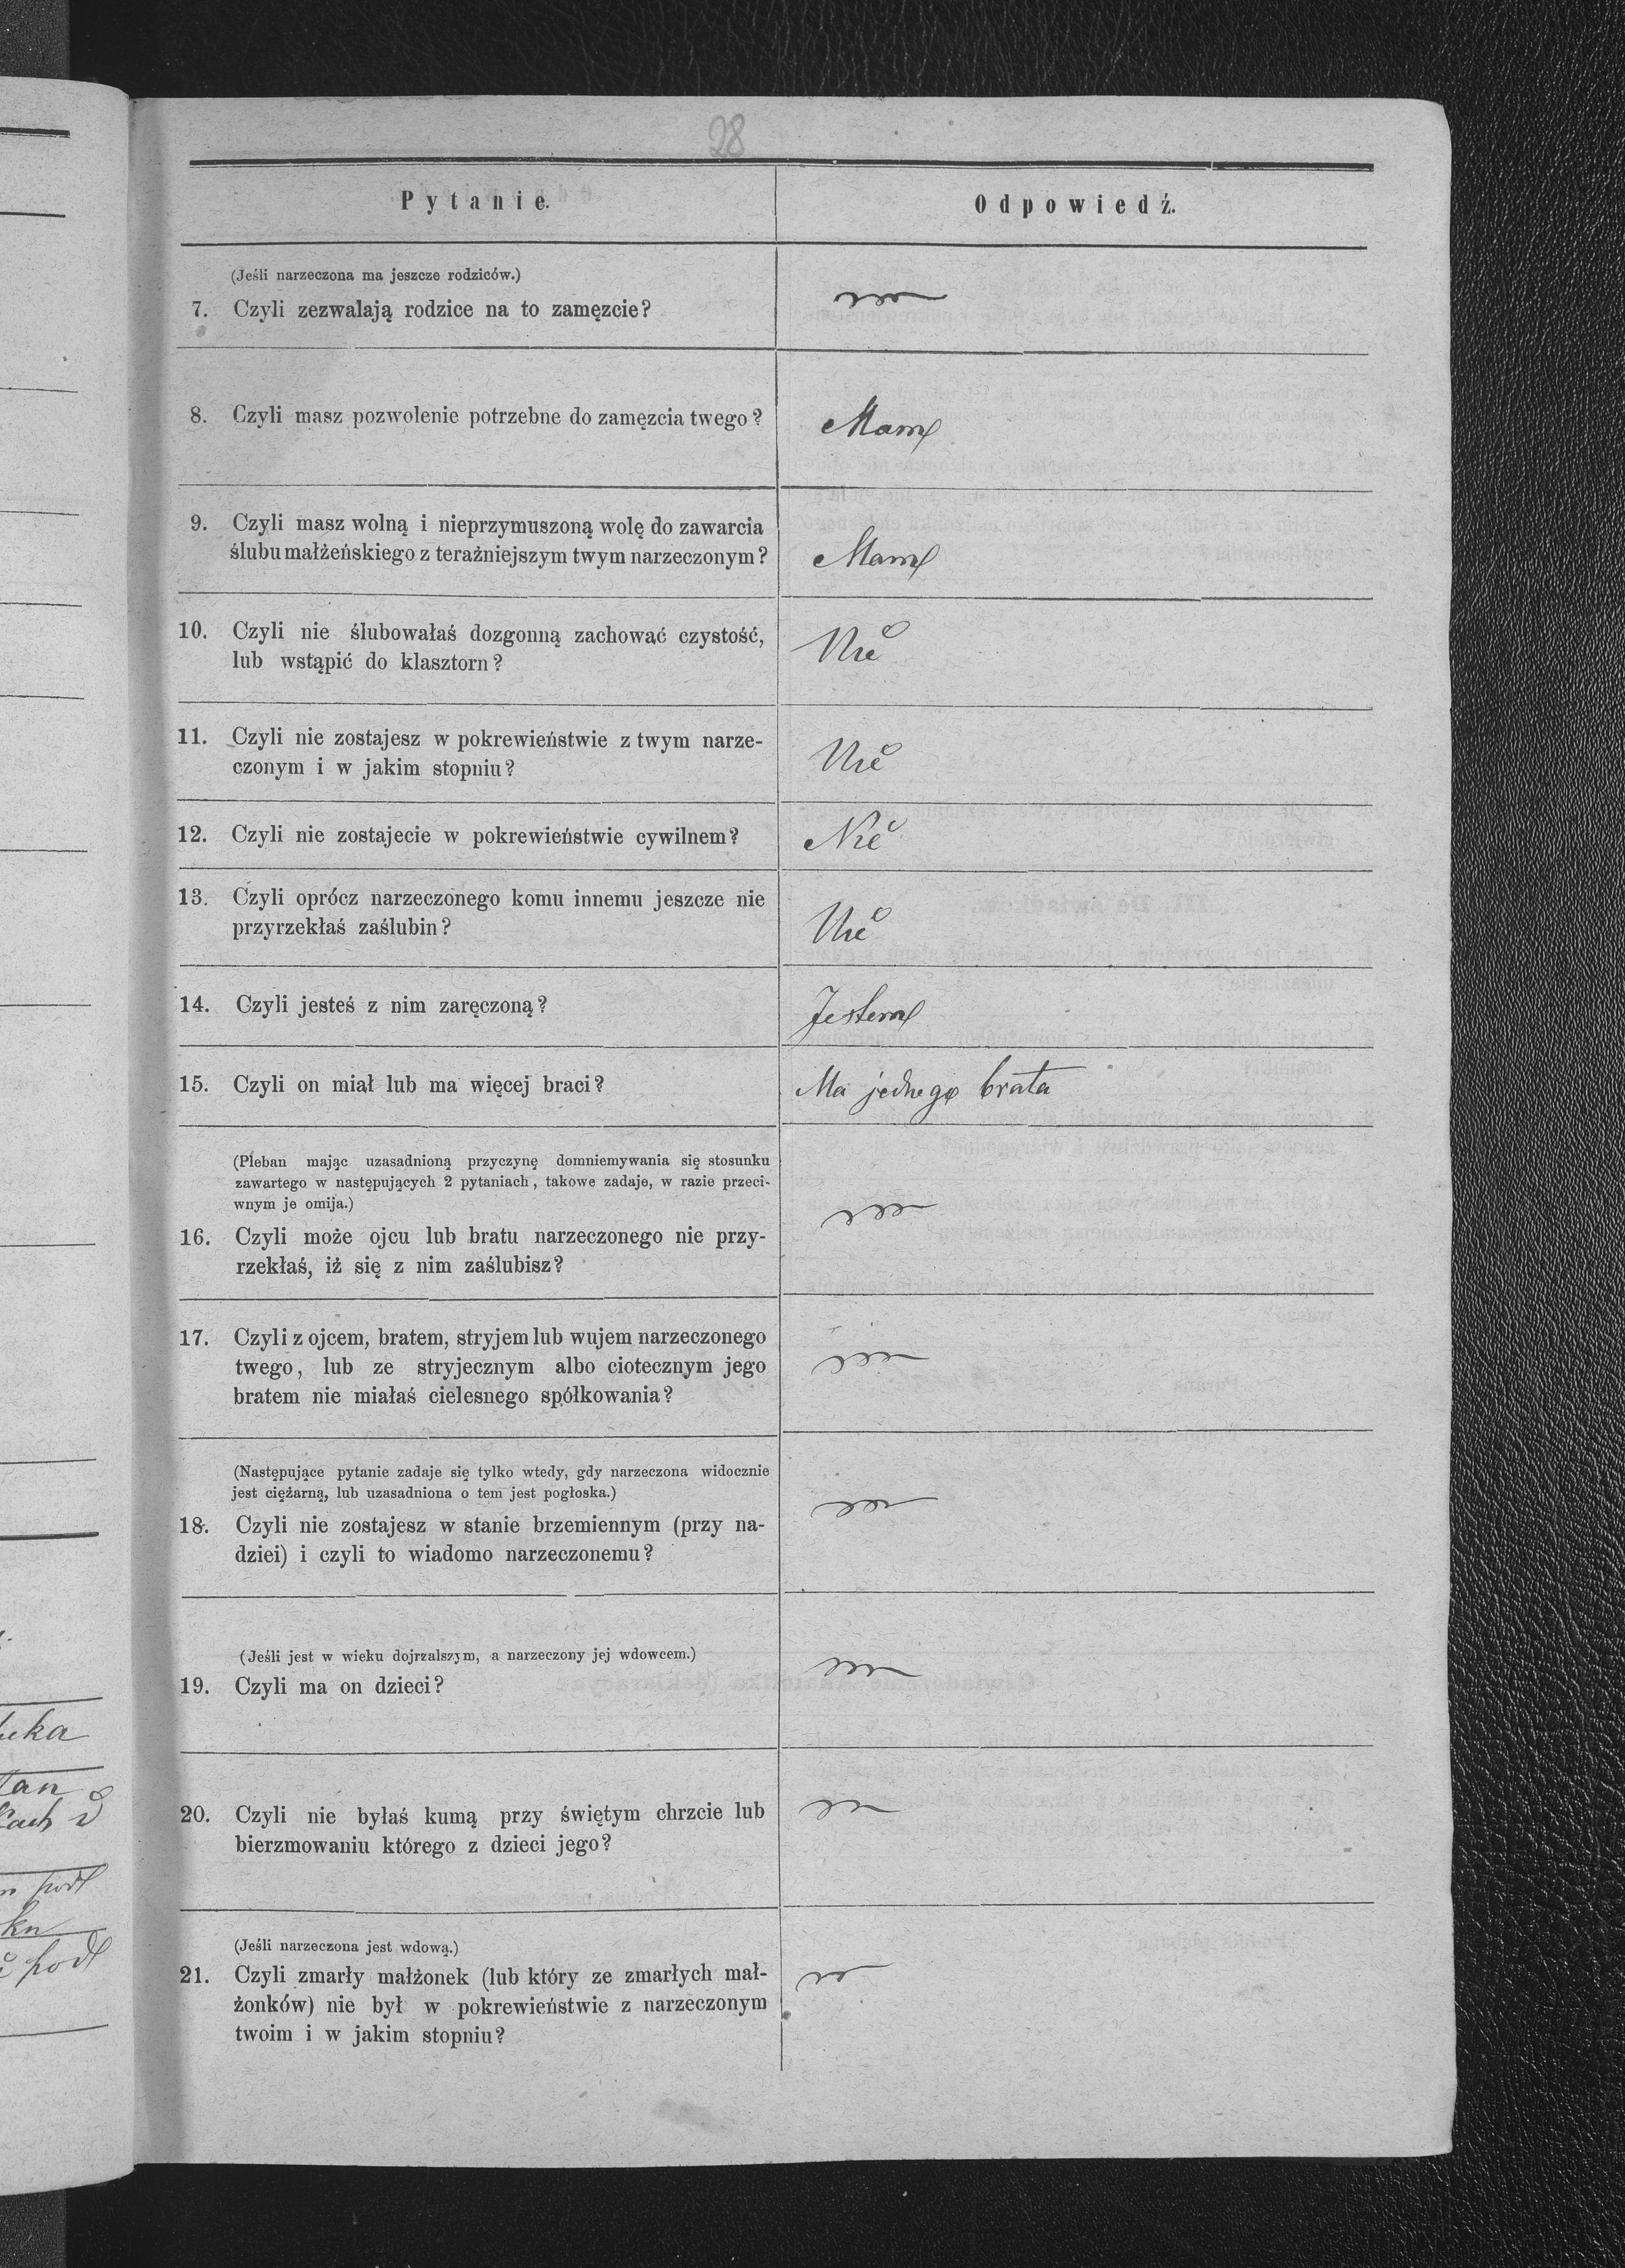 28
Pytanie.
Odpowiedź.
(Jeśli narzeczona ma jeszcze rodziców.)
7. Czyli zezwalają rodzice na to zamęzcie?
8. Czyli masz pozwolenie potrzebne do zamęzcia twego?
Mam
9. Czyli masz wolną i nieprzymuszoną wolę do zawarcia
ślubu małżeńskiego z teraźniejszym twym narzeczonym?
Mam
10. Czyli nie ślubowałaś dozgonną zachować czystość,
lub wstąpić do klasztorn?
Nie
11. Czyli nie zostajesz w pokrewieństwie z twym narze-
czonym i w jakim stopniu?
Nie
12. Czyli nie zostajecie w pokrewieństwie cywilnem?
Nie
13. Czyli oprócz narzeczonego komu innemu jeszcze nie
przyrzekłaś zaślubin?
Nie
14. Czyli jesteś z nim zaręczoną?
Jestem
15. Czyli on miał lub ma więcej braci?
Ma jednego brata
(Pleban mając uzasadnioną przyczynę domniemywania się stosunku
zawartego w następujących 2 pytaniach, takowe zadaje, w razie przeci-
wnym je omija.)
16. Czyli może ojcu lub bratu narzeczonego nie przy-
rzekłaś, iż się z nim zaślubisz?
17. Czyli z ojcem, bratem, stryjem lub wujem narzeczonego
twego, lub ze stryjecznym albo ciotecznym jego
bratem nie miałaś cielesnego spółkowania?
(Następujące pytanie zadaje się tylko wtedy, gdy narzeczona widocznie
jest ciężarną, lub uzasadniona o tem jest pogłoska.)
18. Czyli nie zostajesz w stanie brzemiennym (przy na-
dziei) i czyli to wiadomo narzeczonemu?
(Jeśli jest w wieku dojrzalszym, a narzeczony jej wdowcem.)
19. Czyli ma on dzieci?
20. Czyli nie byłaś kumą przy świętym chrzcie lub
bierzmowaniu którego z dzieci jego?
(Jeśli narzeczona jest wdową.)
21. Czyli zmarły małżonek (lub który ze zmarłych mał-
żonków) nie był w pokrewieństwie z narzeczonym
twoim i w jakim stopniu?